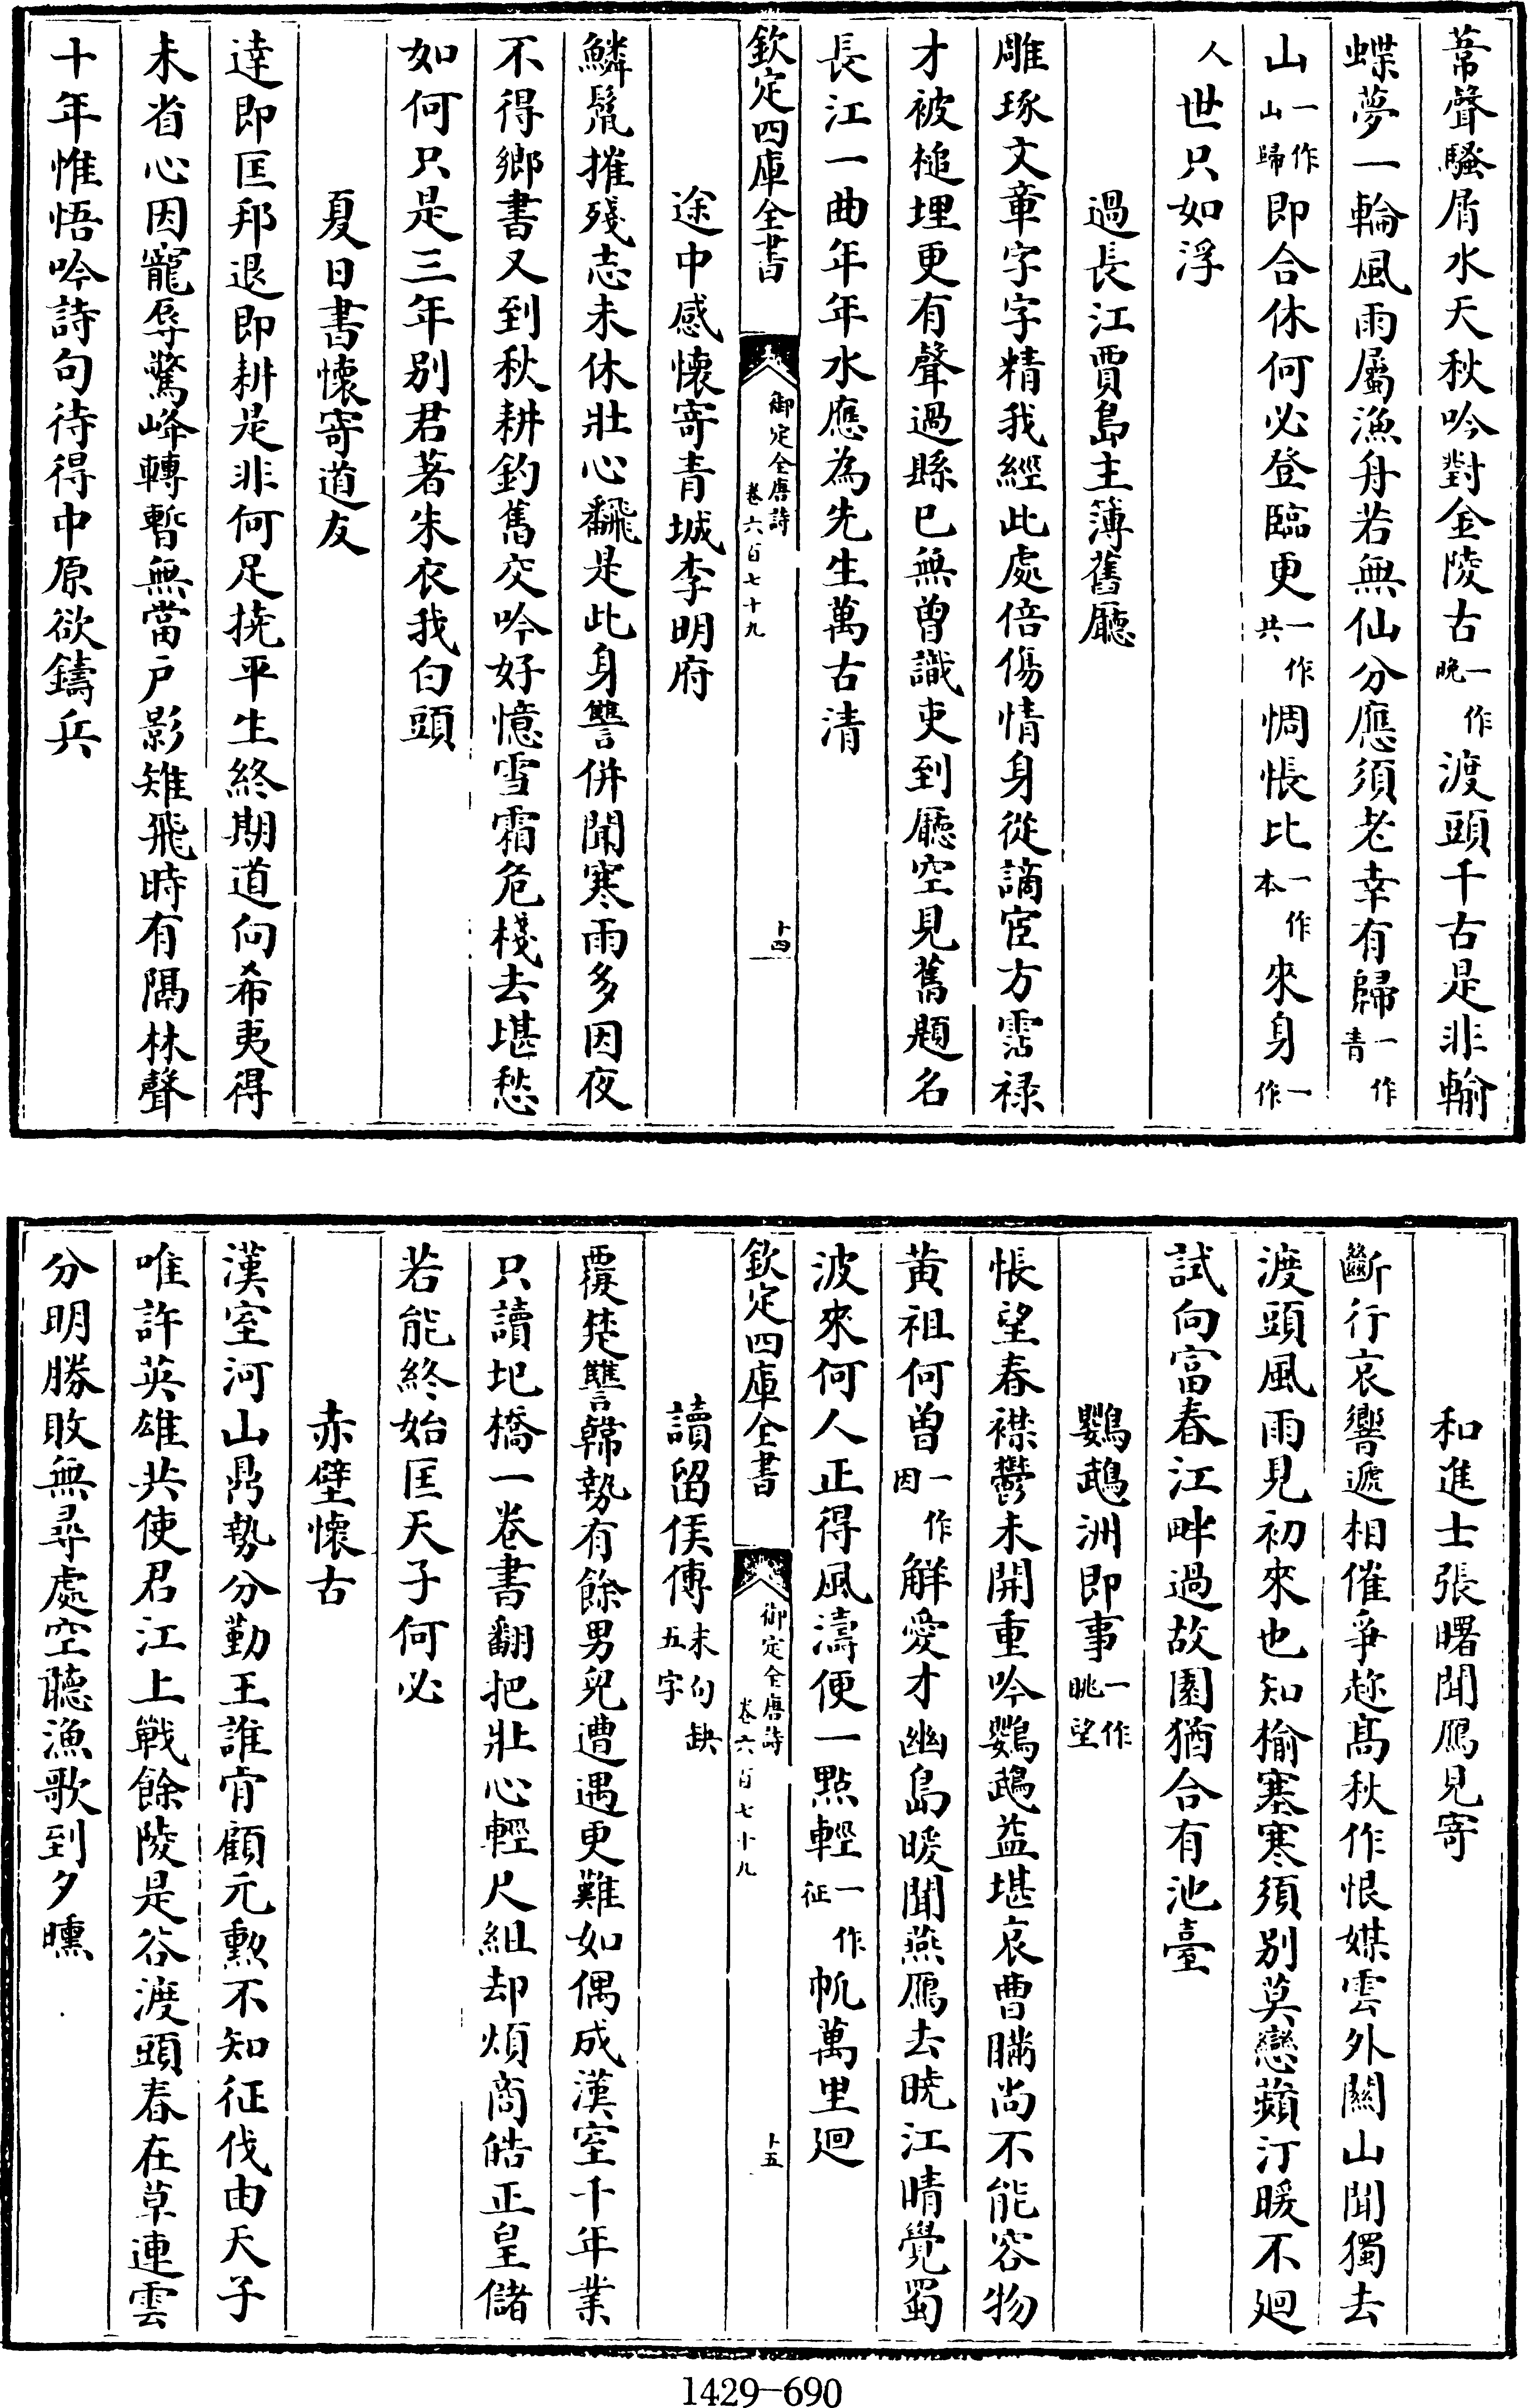 葦聲騷屑水天秋吟對金陵古一作晚渡頭千古是非輸
蝶夢一輪風雨屬漁舟若無仙分應須老幸有歸一作青
山一作山歸即合休何必登臨更一作共惆悵比一作本來身一作
人世只如浮
過長江賈島主簿舊廳
雕琢文章字字精我經此處倍傷情身從謫宦方霑禄
才被槌埋更有聲過縣已無曾識吏到廳空見舊題名
長江一曲年年水應為先生萬古清
欽定四庫全書
御定全唐詩
卷六百七十九
十四
途中感懷寄青城李明府
鱗鬛摧殘志未休壯心翻是此身讐併聞寒雨多因夜
不得鄉書又到秋耕釣舊交吟好憶雪霜危棧去堪愁
如何只是三年别君著朱衣我白頭
夏日書懷寄道友
達即匡邦退即耕是非何足撓平生終期道向希夷得
未省心因寵辱驚峰轉暫無當户影雉飛時有隔林聲
十年惟悟吟詩句待得中原欲鑄兵
和進士張曙聞鴈見寄
斷行哀響遞相催爭趂髙秋作恨媒雲外關山聞獨去
渡頭風雨見初來也知榆塞寒須别莫戀蘋汀暖不廻
試向富春江畔過故園猶合有池臺
鸚鵡洲即事一作眺望
悵望春襟鬱未開重吟鸚鵡益堪哀曹瞞尚不能容物
黄祖何曾一作因解愛才幽島暖聞燕鴈去曉江晴覺蜀
波來何人正得風濤便一點輕一作征帆萬里廻
欽定四庫全書
御定全唐詩
卷六百七十九
十五
讀留侯傳末句缺五字
覆楚讐韓勢有餘男兒遭遇更難如偶成漢室千年業
只讀圯橋一卷書翻把壯心輕尺組却煩商皓正皇儲
若能終始匡天子何必
赤壁懷古
漢室河山鼎勢分勤王誰肯顧元勲不知征伐由天子
唯許英雄共使君江上戰餘陵是谷渡頭春在草連雲
分明勝敗無尋處空聽漁歌到夕曛
1429—690